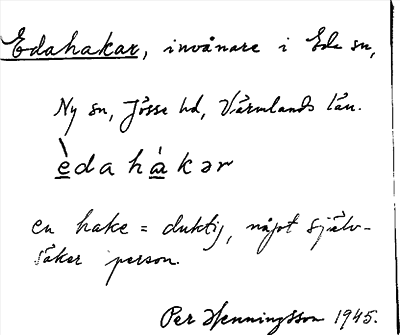 Edahakar, invånare i Eda sn,
Ny sn, Jösse hd, Värmlands län.
èdahàkər
en hake = duktig, något själv-
säker person.
Per Henningsson 1945.